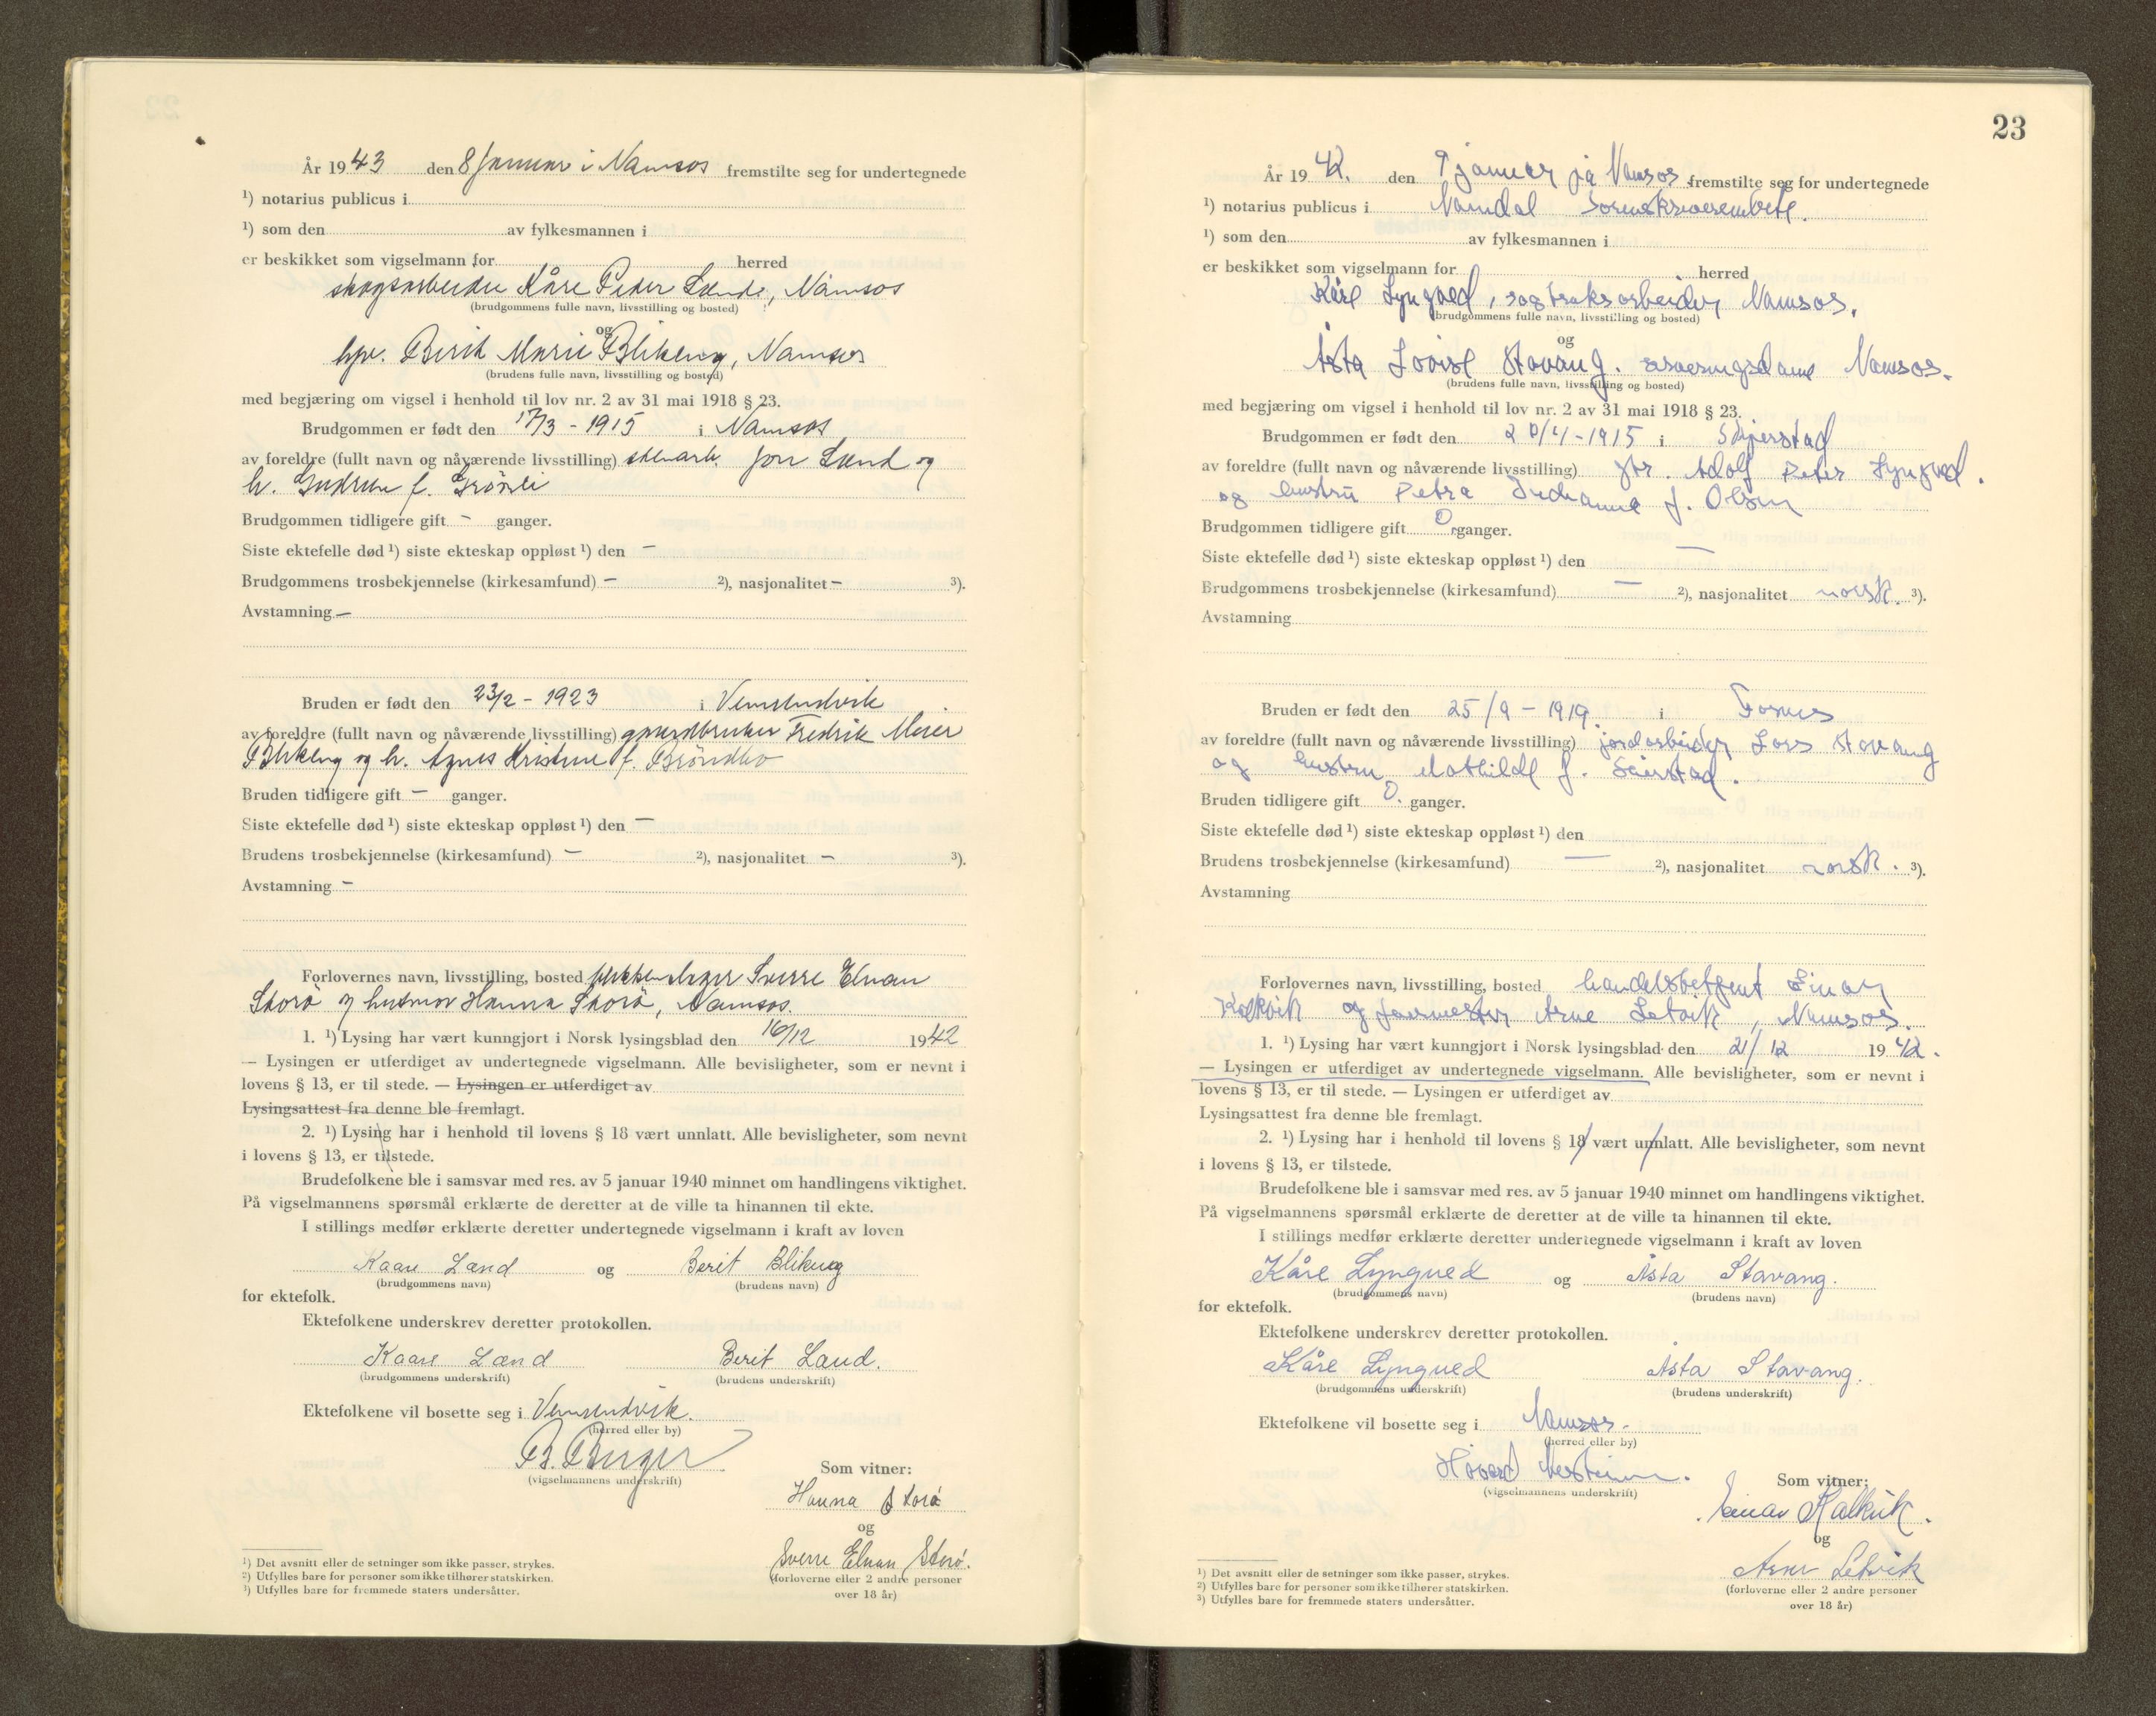 År 1943 den 8 Januar i Namsos fremstilte seg for undertegnede
¹) notarius publicus i
¹) som den av fylkesmannen i
er beskikket som vigselmann for herred
skogsarbeider Kåre Peder Lænd, Namsos
(brudgommens fulle navn, livsstilling og bosted)
og
Berit Marie Blikeng, Namsos
(brudens fulle navn, livsstilling og bosted)
med begjæring om vigsel i henhold til lov nr. 2 av 31 mai 1918 § 23.
Brudgommen er født den 17/3 - 1915 i Namsos
av foreldre (fullt navn og nåværende livsstilling) Jon Lænd og
h. Gudrun f. Grønli
Brudgommen tidligere gift - ganger.
Siste ektefelle død ¹) siste ekteskap oppløst ¹) den -
Brudgommens trosbekjennelse (kirkesamfund) - ²), nasjonalitet - ³).
Avstamning -
Bruden er født den 23/2 - 1923 i Vemundvik
av foreldre (fullt navn og nåværende livsstilling) gaardbruker Fredrik Meier
Blikeng og h. Agnes Kristine f. Brøndbo
Bruden tidligere gift - ganger.
Siste ektefelle død ¹) siste ekteskap oppløst ¹) den -
Brudens trosbekjennelse (kirkesamfund) - ²), nasjonalitet - ³).
Avstamning -
Forlovernes navn, livsstilling, bosted Sverre Elnan
Storø og husmor Hanna Storø, Namsos.
1. ¹) Lysing har vært kunngjort i Norsk lysingsblad den 16/12 1942
— Lysingen er utferdiget av undertegnede vigselmann. Alle bevisligheter, som er nevnt i
lovens § 13, er til stede. — Lysingen er utferdiget av
Lysingsattest fra denne ble fremlagt.
2. ¹) Lysing har i henhold til lovens § 18 vært unnlatt. Alle bevisligheter, som nevnt
i lovens § 13, er tilstede.
Brudefolkene ble i samsvar med res. av 5 januar 1940 minnet om handlingens viktighet.
På vigselmannens spørsmål erklærte de deretter at de ville ta hinannen til ekte.
I stillings medfør erklærte deretter undertegnede vigselmann i kraft av loven
Kaare Lænd og Berit Blikeng
(brudgommens navn) (brudens navn)
for ektefolk.
Ektefolkene underskrev deretter protokollen.
Kaare Lænd Berit Lænd.
(brudgommens underskrift) (brudens underskrift)
Ektefolkene vil bosette seg i Vemundvik.
(herred eller by)
B. Berger
(vigselmannens underskrift)
Som vitner:
Hanna Storø
og
Sverre Elnan Storø.
(forloverne eller 2 andre personer
over 18 år)
¹) Det avsnitt eller de setninger som ikke passer, strykes.
²) Utfylles bare for personer som ikke tilhører statskirken.
³) Utfylles bare for fremmede staters undersåtter.
23
År 1942. den 9 januar på Namsos fremstilte seg for undertegnede
¹) notarius publicus i Namdal Sorenskriverembete.
¹) som den av fylkesmannen i
er beskikket som vigselmann for herred
Kåre Lyngved, sagbruksarbeider, Namsos.
(brudgommens fulle navn, livsstilling og bosted)
og
Åsta Lovise Stavang. serveringsdame Namsos.
(brudens fulle navn, livsstilling og bosted)
med begjæring om vigsel i henhold til lov nr. 2 av 31 mai 1918 § 23.
Brudgommen er født den 20/4 - 1915 i Skjerstad
av foreldre (fullt navn og nåværende livsstilling) gbr. Adolf Peter Lyngved.
og hustru Petra f. Olsen
Brudgommen tidligere gift 0 ganger.
Siste ektefelle død ¹) siste ekteskap oppløst ¹) den —
Brudgommens trosbekjennelse (kirkesamfund) — ²), nasjonalitet norsk. ³).
Avstamning
Bruden er født den 25/9 - 1919. i Fosnes
av foreldre (fullt navn og nåværende livsstilling) jordarbeider Lars Stavang
og hustru Mathilde f. Seierstad.
Bruden tidligere gift 0. ganger.
Siste ektefelle død ¹) siste ekteskap oppløst ¹) den
Brudens trosbekjennelse (kirkesamfund) — ²), nasjonalitet norsk. ³).
Avstamning
Forlovernes navn, livsstilling, bosted handelsbetjent Einar
Kalkvik og Arne Letvik, Namsos.
1. ¹) Lysing har vært kunngjort i Norsk lysingsblad den 21/12 1942.
— Lysingen er utferdiget av undertegnede vigselmann. Alle bevisligheter, som er nevnt i
lovens § 13, er til stede. — Lysingen er utferdiget av
Lysingsattest fra denne ble fremlagt.
2. ¹) Lysing har i henhold til lovens § 18 vært unnlatt. Alle bevisligheter, som nevnt
i lovens § 13, er tilstede.
Brudefolkene ble i samsvar med res. av 5 januar 1940 minnet om handlingens viktighet.
På vigselmannens spørsmål erklærte de deretter at de ville ta hinannen til ekte.
I stillings medfør erklærte deretter undertegnede vigselmann i kraft av loven
Kåre Lyngved og Åsta Stavang.
(brudgommens navn) (brudens navn)
for ektefolk.
Ektefolkene underskrev deretter protokollen.
Kåre Lyngved Åsta Stavang.
(brudgommens underskrift) (brudens underskrift)
Ektefolkene vil bosette seg i Namsos.
(herred eller by)
Håvard
(vigselmannens underskrift)
Som vitner:
Einar Kalkvik.
og
Arne Letvik
(forloverne eller 2 andre personer
over 18 år)
¹) Det avsnitt eller de setninger som ikke passer, strykes.
²) Utfylles bare for personer som ikke tilhører statskirken.
³) Utfylles bare for fremmede staters undersåtter.